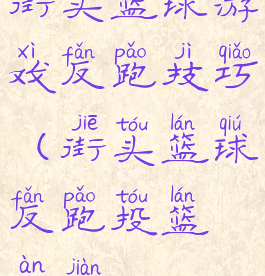 街头篮球游
xì fǎn pǎo jì qiǎo
戏反跑技巧
jiē tóu lán qiú
（街头篮球
fǎn pǎo tóu lán
反跑投篮
àn jiàn